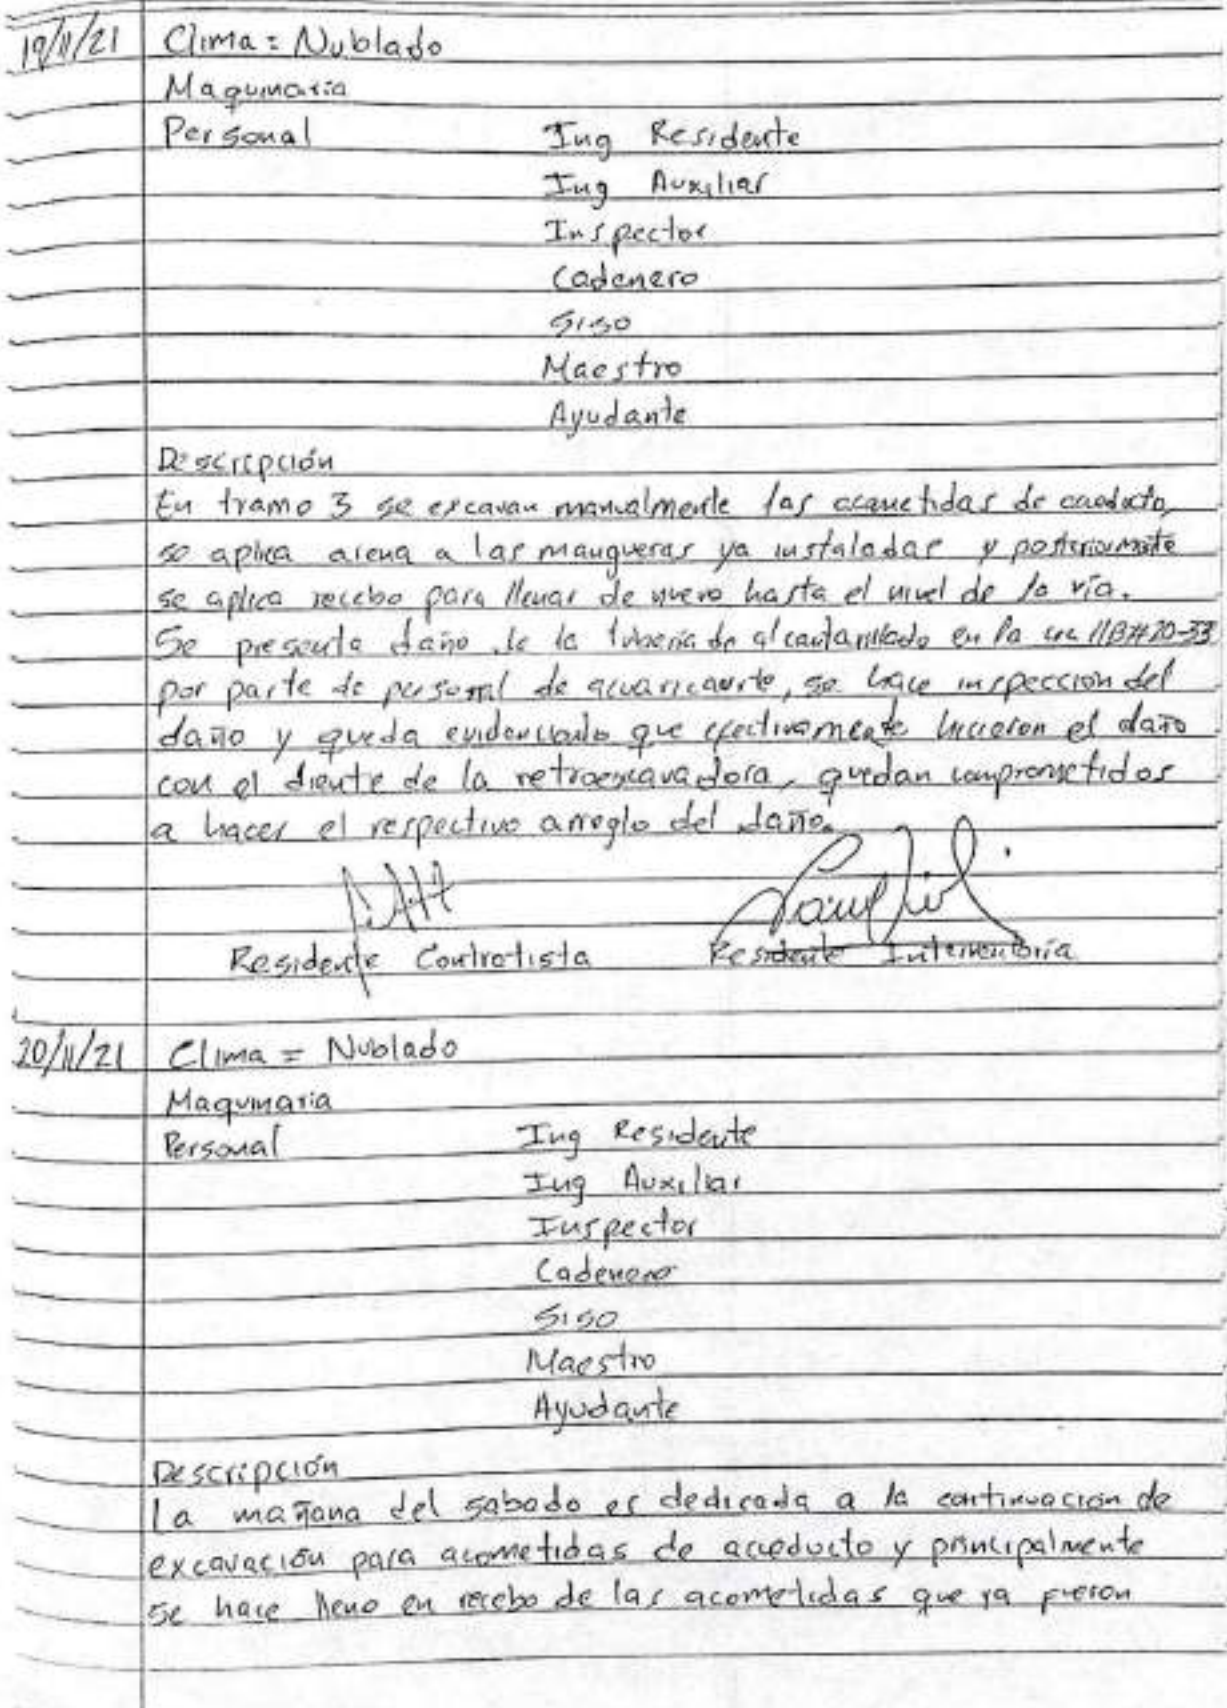 19/11/21 Clima = Nublado
Maquinaria
Personal Ing Residente
Ing Auxiliar
Inspector
Cadenero
Siso
Maestro
Ayudante
Descripción
En tramo 3 se excavan manualmente las acometidas de
se aplica arena a las mangueras ya instaladas y posteriormente
se aplica recebo para llenar de nuevo hasta el nivel de la vía.
Se presenta daño de la tubería de alcantarillado en la #20-33
por parte de personal de se hace inspección del
daño y queda evidenciado que efectivamente hicieron el daño
con el diente de la retroexcavadora, quedan comprometidos
a hacer el respectivo arreglo del daño.
Residente Contratista Residente Interventoria
20/11/21 Clima = Nublado
Maquinaria
Personal Ing Residente
Ing Auxiliar
Inspector
Cadenero
Siso
Maestro
Ayudante
Descripción
La mañana del sabado es dedicada a la continuacion de
excavación para acometidas de acueducto y principalmente
se hace lleno en recebo de las acometidas que ya fueron